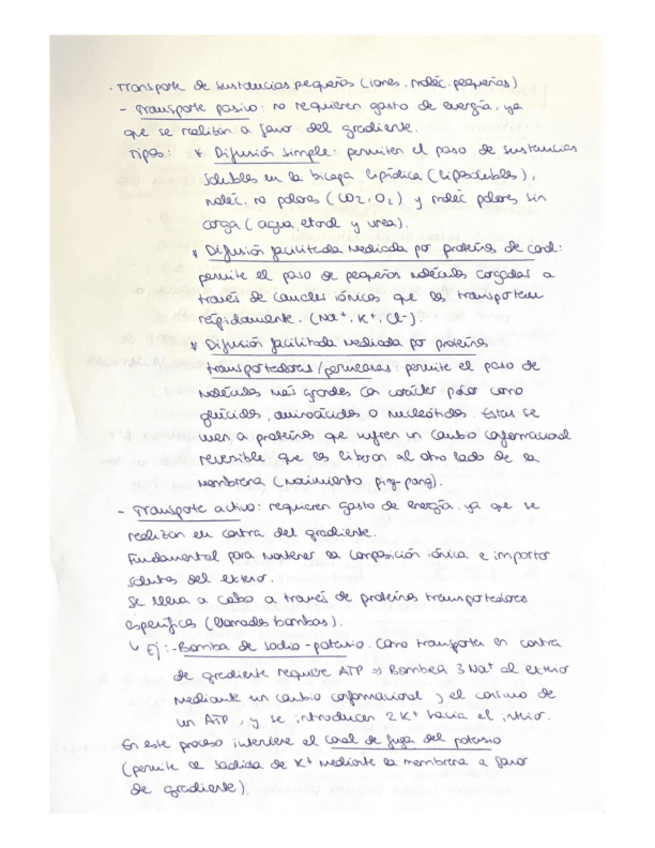 · Transporte de sustancias pequeñas (iones, moléc. pequeñas)
- Transporte pasivo: no requieren gasto de energía, ya
que se realizan a favor del gradiente.
Tipos: * Difusión simple: permiten el paso de sustancias
solubles en la bicapa lipídica (liposolubles),
moléc. no polares (CO2, O2) y moléc polares sin
carga (agua, etanol y urea).
* Difusión facilitada mediada por proteínas de canal:
permite el paso de pequeñas moléculas cargadas a
través de canales iónicos que las transportan
rápidamente. (Na+, K+, Cl-).
* Difusión facilitada mediada por proteínas
transportadoras/permeasas: permite el paso de
moléculas más grandes con carácter polar como
glúcidos, aminoácidos o nucleótidos. Estas se
unen a proteínas que sufren un cambio conformacional
reversible que las liberan al otro lado de la
membrana (movimiento ping-pong).
- Transporte activo: requieren gasto de energía, ya que se
realizan en contra del gradiente.
Fundamental para mantener la composición iónica e importar
solutos del exterior.
Se lleva a cabo a través de proteínas transportadoras
específicas (llamadas bombas).
↳ Ej: - Bomba de sodio-potasio. Como transporta en contra
de gradiente requiere ATP → Bombea 3 Na+ al exterior
mediante un cambio conformacional y el consumo de
un ATP, y se introducen 2 K+ hacia el interior.
En este proceso interviene el canal de fuga del potasio
(permite la salida de K+ mediante la membrana a favor
de gradiente).